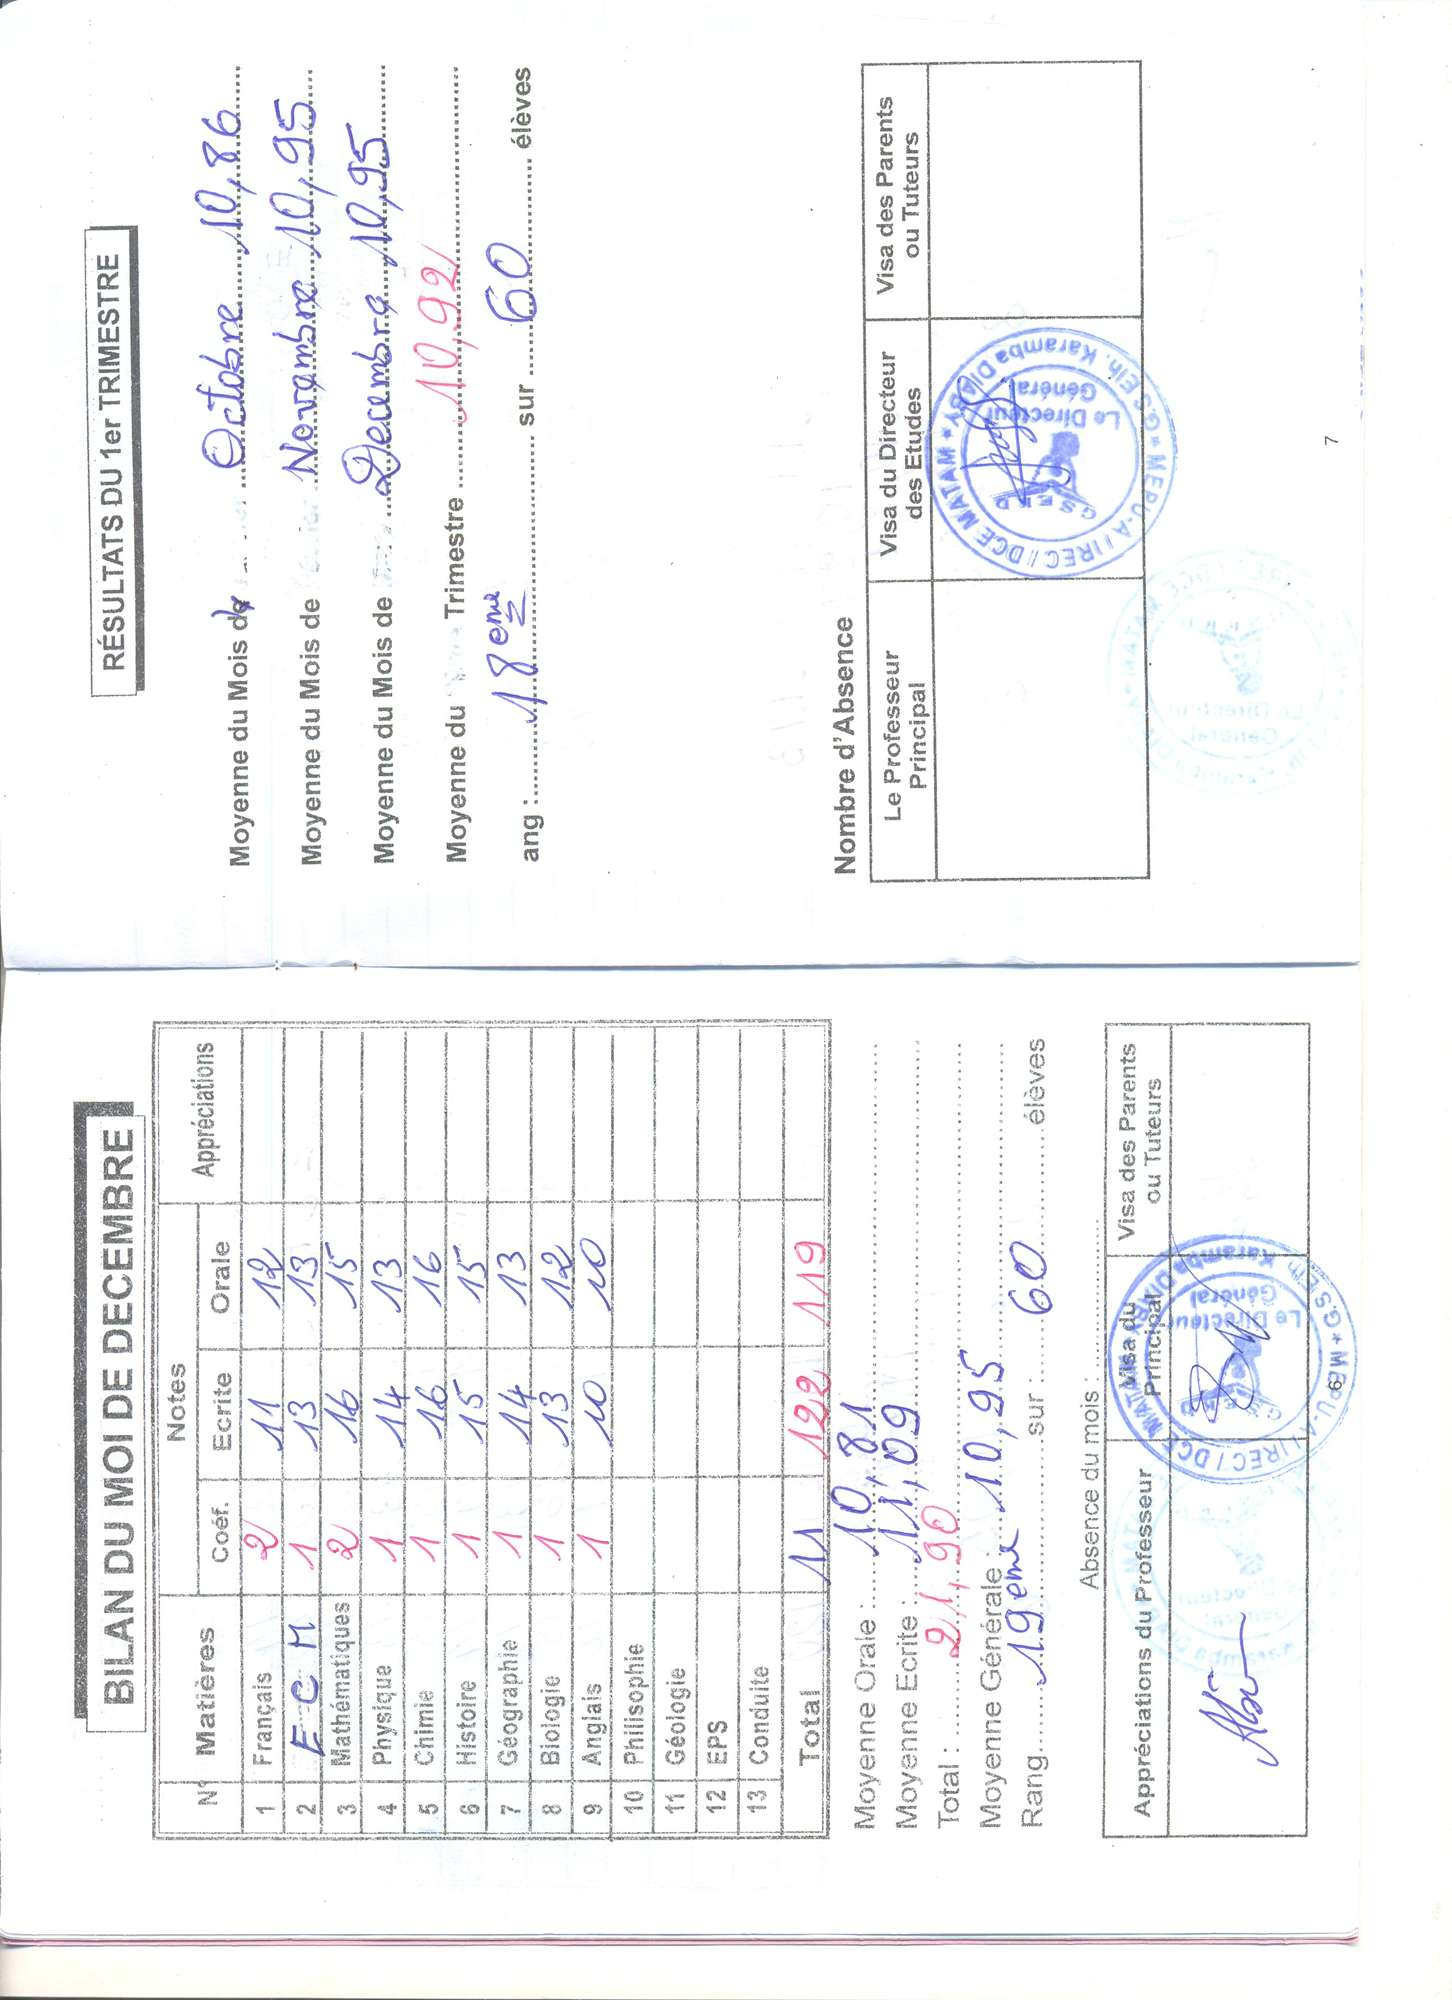 BILAN DU MOI DE DECEMBRE
N° Matières Notes Appréciations
Coéf. Ecrite Orale
1 Français 2 11 12
2 E C M 1 13 13
3 Mathématiques 2 16 15
4 Physique 1 14 13
5 Chimie 1 16 16
6 Histoire 1 15 15
7 Géographie 1 14 13
8 Biologie 1 13 12
9 Anglais 1 10 10
10 Philisophie
11 Géologie
12 EPS
13 Conduite
Total 11 122 119
Moyenne Orale : 10,81
Moyenne Ecrite : 11,09
Total : 21,90
Moyenne Générale 10,95
Rang 19eme sur : 60 élèves
Absence du mois :
Appréciations du Professeur
Visa du Principal
Visa des Parents ou Tuteurs
G.S Elh. Karamba DIABY * MEPU-A / IREC / DCE MATAM *
Le Directeur Général
G S E K D
6
RÉSULTATS DU 1er TRIMESTRE
Moyenne du Mois de Octobre 10,86
Moyenne du Mois de Novembre 10,95
Moyenne du Mois de Decembre 10,95
Moyenne du Trimestre 10,92
ang : 18eme sur 60 élèves
Nombre d'Absence
Le Professeur Principal
Visa du Directeur des Etudes
Visa des Parents ou Tuteurs
G.S Elh. Karamba DIABY * MEPU-A / IREC / DCE MATAM *
Le Directeur Général
G S E K D
7